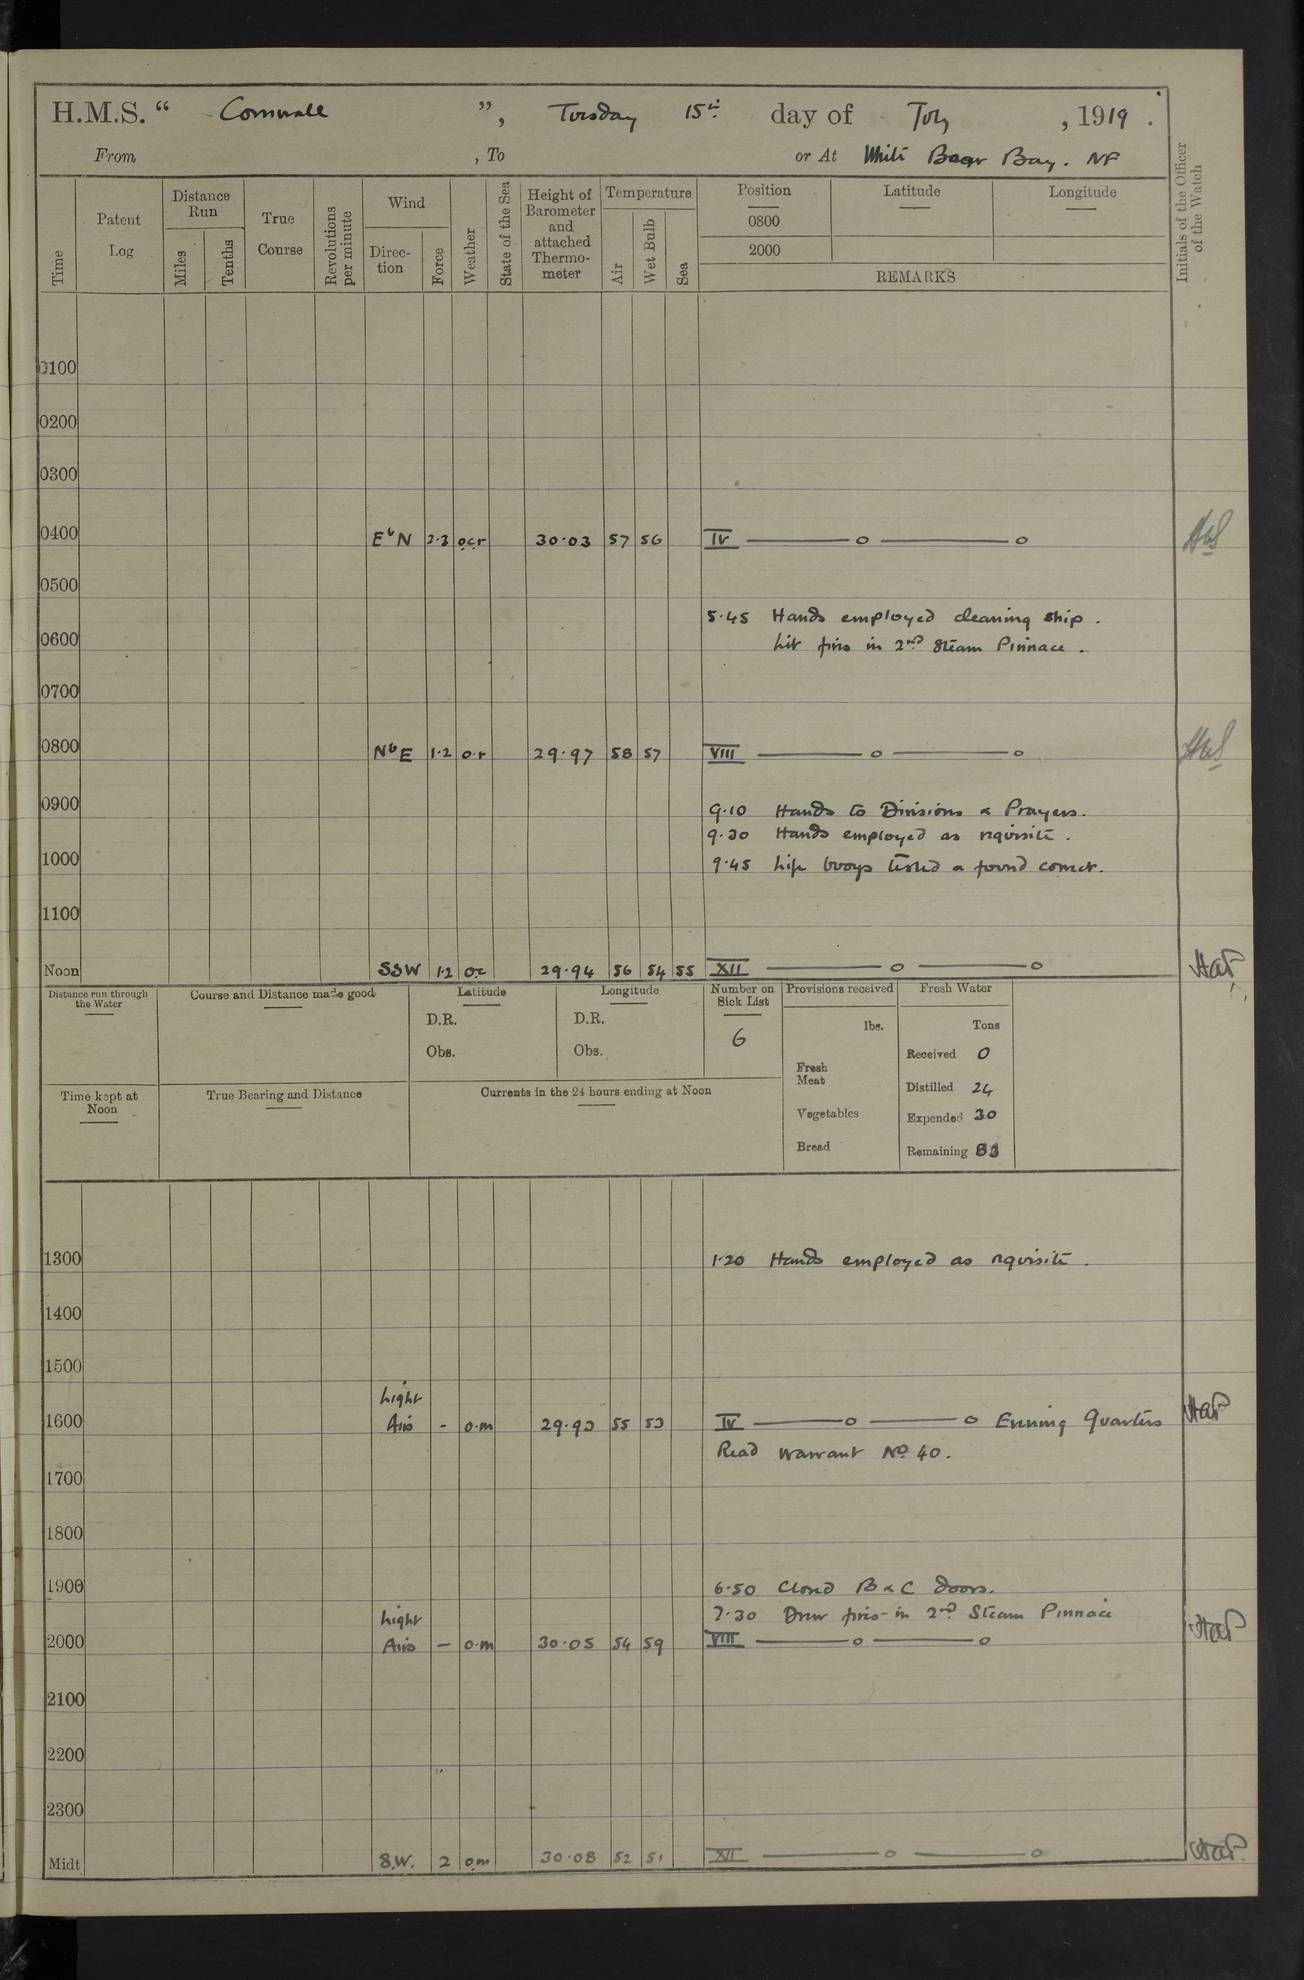 H.M.S. “ Cornwall ”, Tuesday 15th day of July, 1919.
From , To or At White Bear Bay. NF
Time Patent Log Distance Run Miles Tenths True Course Revolutions per minute Wind Direction Force Weather State of the Sea Height of Barometer and attached Thermometer Temperature Air Wet Bulb Sea Position Latitude Longitude Initials of the Officer of the Watch
0800
2000
REMARKS
0100
0200
0300
0400 EbN 2·3 ocr 30·03 57 56 IV ——o——o
0500
5·45 Hands employed cleaning ship.
0600 Lit fires in 2nd Steam Pinnace.
0700
0800 NbE 1·2 o·r 29·97 58 57 VIII ——o——o
0900 9·10 Hands to Divisions & Prayers.
9·30 Hands employed as requisite.
1000 9·45 Life buoys tested & found correct.
1100
Noon SSW 1·2 oc 29·94 56 54 55 XII ——o——o HaP
Distance run through the Water Course and Distance made good Latitude Longitude Number on Sick List Provisions received Fresh Water
D.R. D.R. lbs. Tons
Obs. Obs. 6 Received 0
Fresh Meat Distilled 24
Time kept at Noon True Bearing and Distance Currents in the 24 hours ending at Noon
Vegetables Expended 30
Bread Remaining
1300 1·20 Hands employed as requisite.
1400
1500
Light
1600 Airs - o·m 29·93 55 53 IV ——o——o Evening Quarters HaP
Read Warrant No 40.
1700
1800
1900 6·50 Closed B & C doors.
Light 7·30 Drew fires in 2nd Steam Pinnace
2000 Airs — o·m 30·05 54 59 VIII ——o——o HaP
2100
2200
2300
Midt. S.W. 2 om 30·08 52 51 XII ——o——o HaP